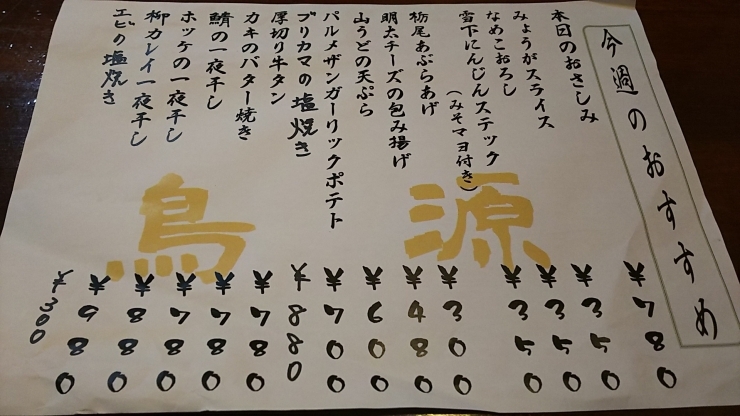 今週のおすすめ
本日のおさしみ ¥780
みょうがスライス ¥350
なめこおろし ¥350
雪下にんじんステック ¥350
(みそマヨ付き)
栃尾あぶらあげ ¥300
明太チーズの包み揚げ ¥480
山うどの天ぷら ¥600
パルメザンガーリックポテト ¥700
ブリカマの塩焼き ¥880
厚切り牛タン ¥780
カキのバター焼き ¥780
鯖の一夜干し ¥780
ホッケの一夜干し ¥880
柳カレイ一夜干し ¥980
エビの塩焼き ¥300
鳥源